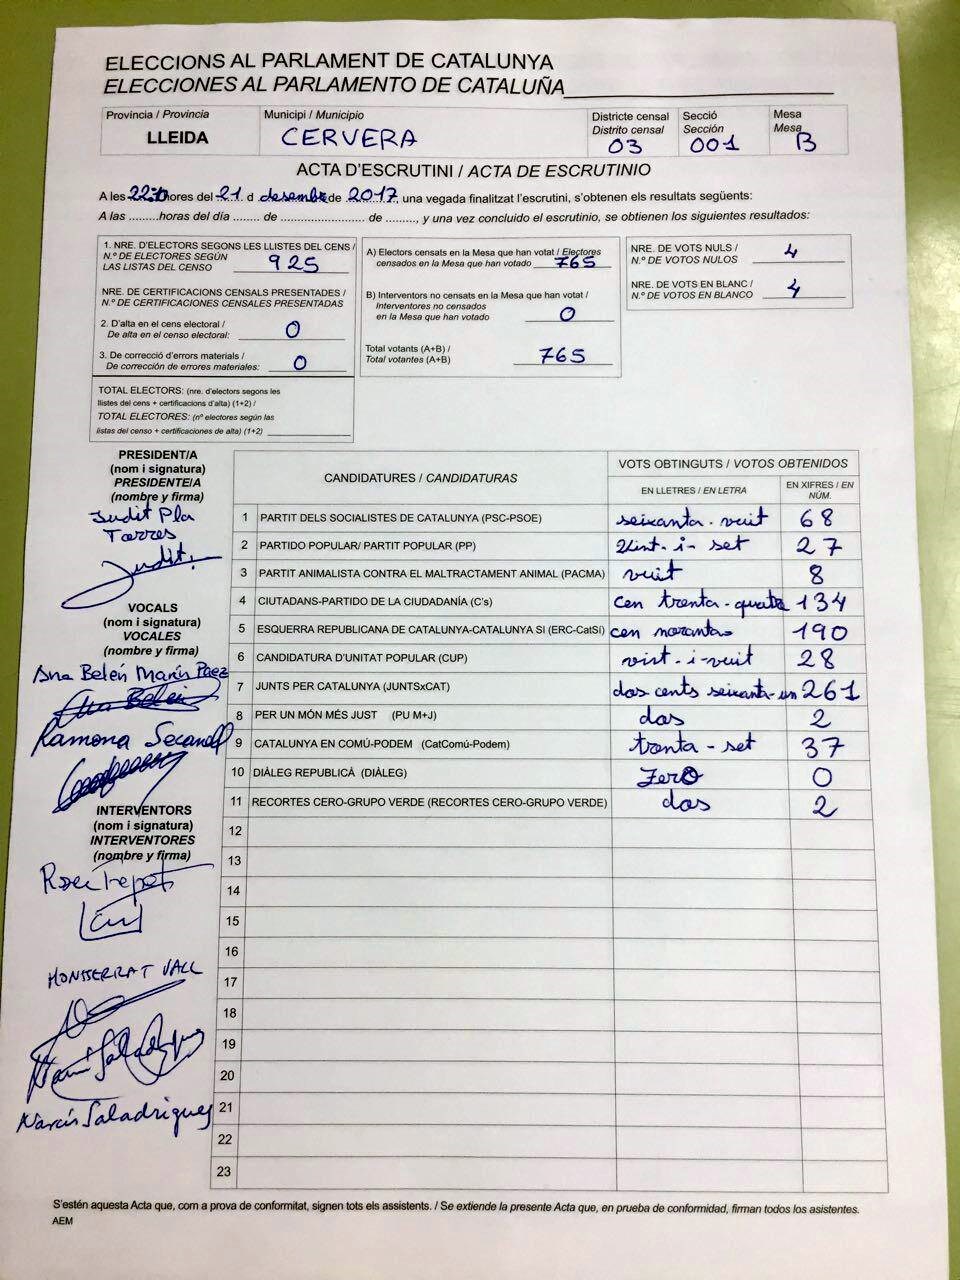 ELECCIONS AL PARLAMENT DE CATALUNYA
ELECCIONES AL PARLAMENTO DE CATALUÑA
Província / Provincia
LLEIDA
Municipi / Municipio
CERVERA
Districte censal
Distrito censal
03
Secció
Sección
001
Mesa
Mesa
B
ACTA D'ESCRUTINI / ACTA DE ESCRUTINIO
A les 22:10 hores del 21 d desembre de 2017, una vegada finalitzat l'escrutini, s'obtenen els resultats següents:
A las .........horas del día ........ de ..................... de ........, y una vez concluido el escrutinio, se obtienen los siguientes resultados:
1. NRE. D'ELECTORS SEGONS LES LLISTES DEL CENS /
N.º DE ELECTORES SEGÚN
LAS LISTAS DEL CENSO 925
NRE. DE CERTIFICACIONS CENSALS PRESENTADES /
N.º DE CERTIFICACIONES CENSALES PRESENTADAS
2. D'alta en el cens electoral /
De alta en el censo electoral: 0
3. De correcció d'errors materials /
De corrección de errores materiales: 0
TOTAL ELECTORS: (nre. d'electors segons les
llistes del cens + certificacions d'alta) (1+2) /
TOTAL ELECTORES: (nº electores según las
listas del censo + certificaciones de alta) (1+2)
A) Electors censats en la Mesa que han votat / Electores
censados en la Mesa que han votado 765
B) Interventors no censats en la Mesa que han votat /
Interventores no censados
en la Mesa que han votado 0
Total votants (A+B) /
Total votantes (A+B) 765
NRE. DE VOTS NULS /
N.º DE VOTOS NULOS 4
NRE. DE VOTS EN BLANC /
N.º DE VOTOS EN BLANCO 4
PRESIDENT/A
(nom i signatura)
PRESIDENTE/A
(nombre y firma)
Judit Pla
Torres
Judit
VOCALS
(nom i signatura)
VOCALES
(nombre y firma)
Ana Belén Marín Páez
Ana Belén
Ramona Secanell
INTERVENTORS
(nom i signatura)
INTERVENTORES
(nombre y firma)
Roser Trepat
MONTSERRAT VALL
Narcís Saladrigues
Narcís Saladrigues
CANDIDATURES / CANDIDATURAS
VOTS OBTINGUTS / VOTOS OBTENIDOS
EN LLETRES / EN LETRA
EN XIFRES / EN
NÚM.
1 PARTIT DELS SOCIALISTES DE CATALUNYA (PSC-PSOE) seixanta-vuit 68
2 PARTIDO POPULAR/ PARTIT POPULAR (PP) Vint-i-set 27
3 PARTIT ANIMALISTA CONTRA EL MALTRACTAMENT ANIMAL (PACMA) vuit 8
4 CIUTADANS-PARTIDO DE LA CIUDADANÍA (C's) cen trenta-quatre 134
5 ESQUERRA REPUBLICANA DE CATALUNYA-CATALUNYA SI (ERC-CatSí) cen noranta 190
6 CANDIDATURA D'UNITAT POPULAR (CUP) vint-i-vuit 28
7 JUNTS PER CATALUNYA (JUNTSxCAT) dos cents seixanta-un 261
8 PER UN MÓN MÉS JUST (PU M+J) dos 2
9 CATALUNYA EN COMÚ-PODEM (CatComú-Podem) trenta-set 37
10 DIÀLEG REPUBLICÀ (DIÀLEG) Zero 0
11 RECORTES CERO-GRUPO VERDE (RECORTES CERO-GRUPO VERDE) dos 2
12
13
14
15
16
17
18
19
20
21
22
23
S'estén aquesta Acta que, com a prova de conformitat, signen tots els assistents. / Se extiende la presente Acta que, en prueba de conformidad, firman todos los asistentes.
AEM